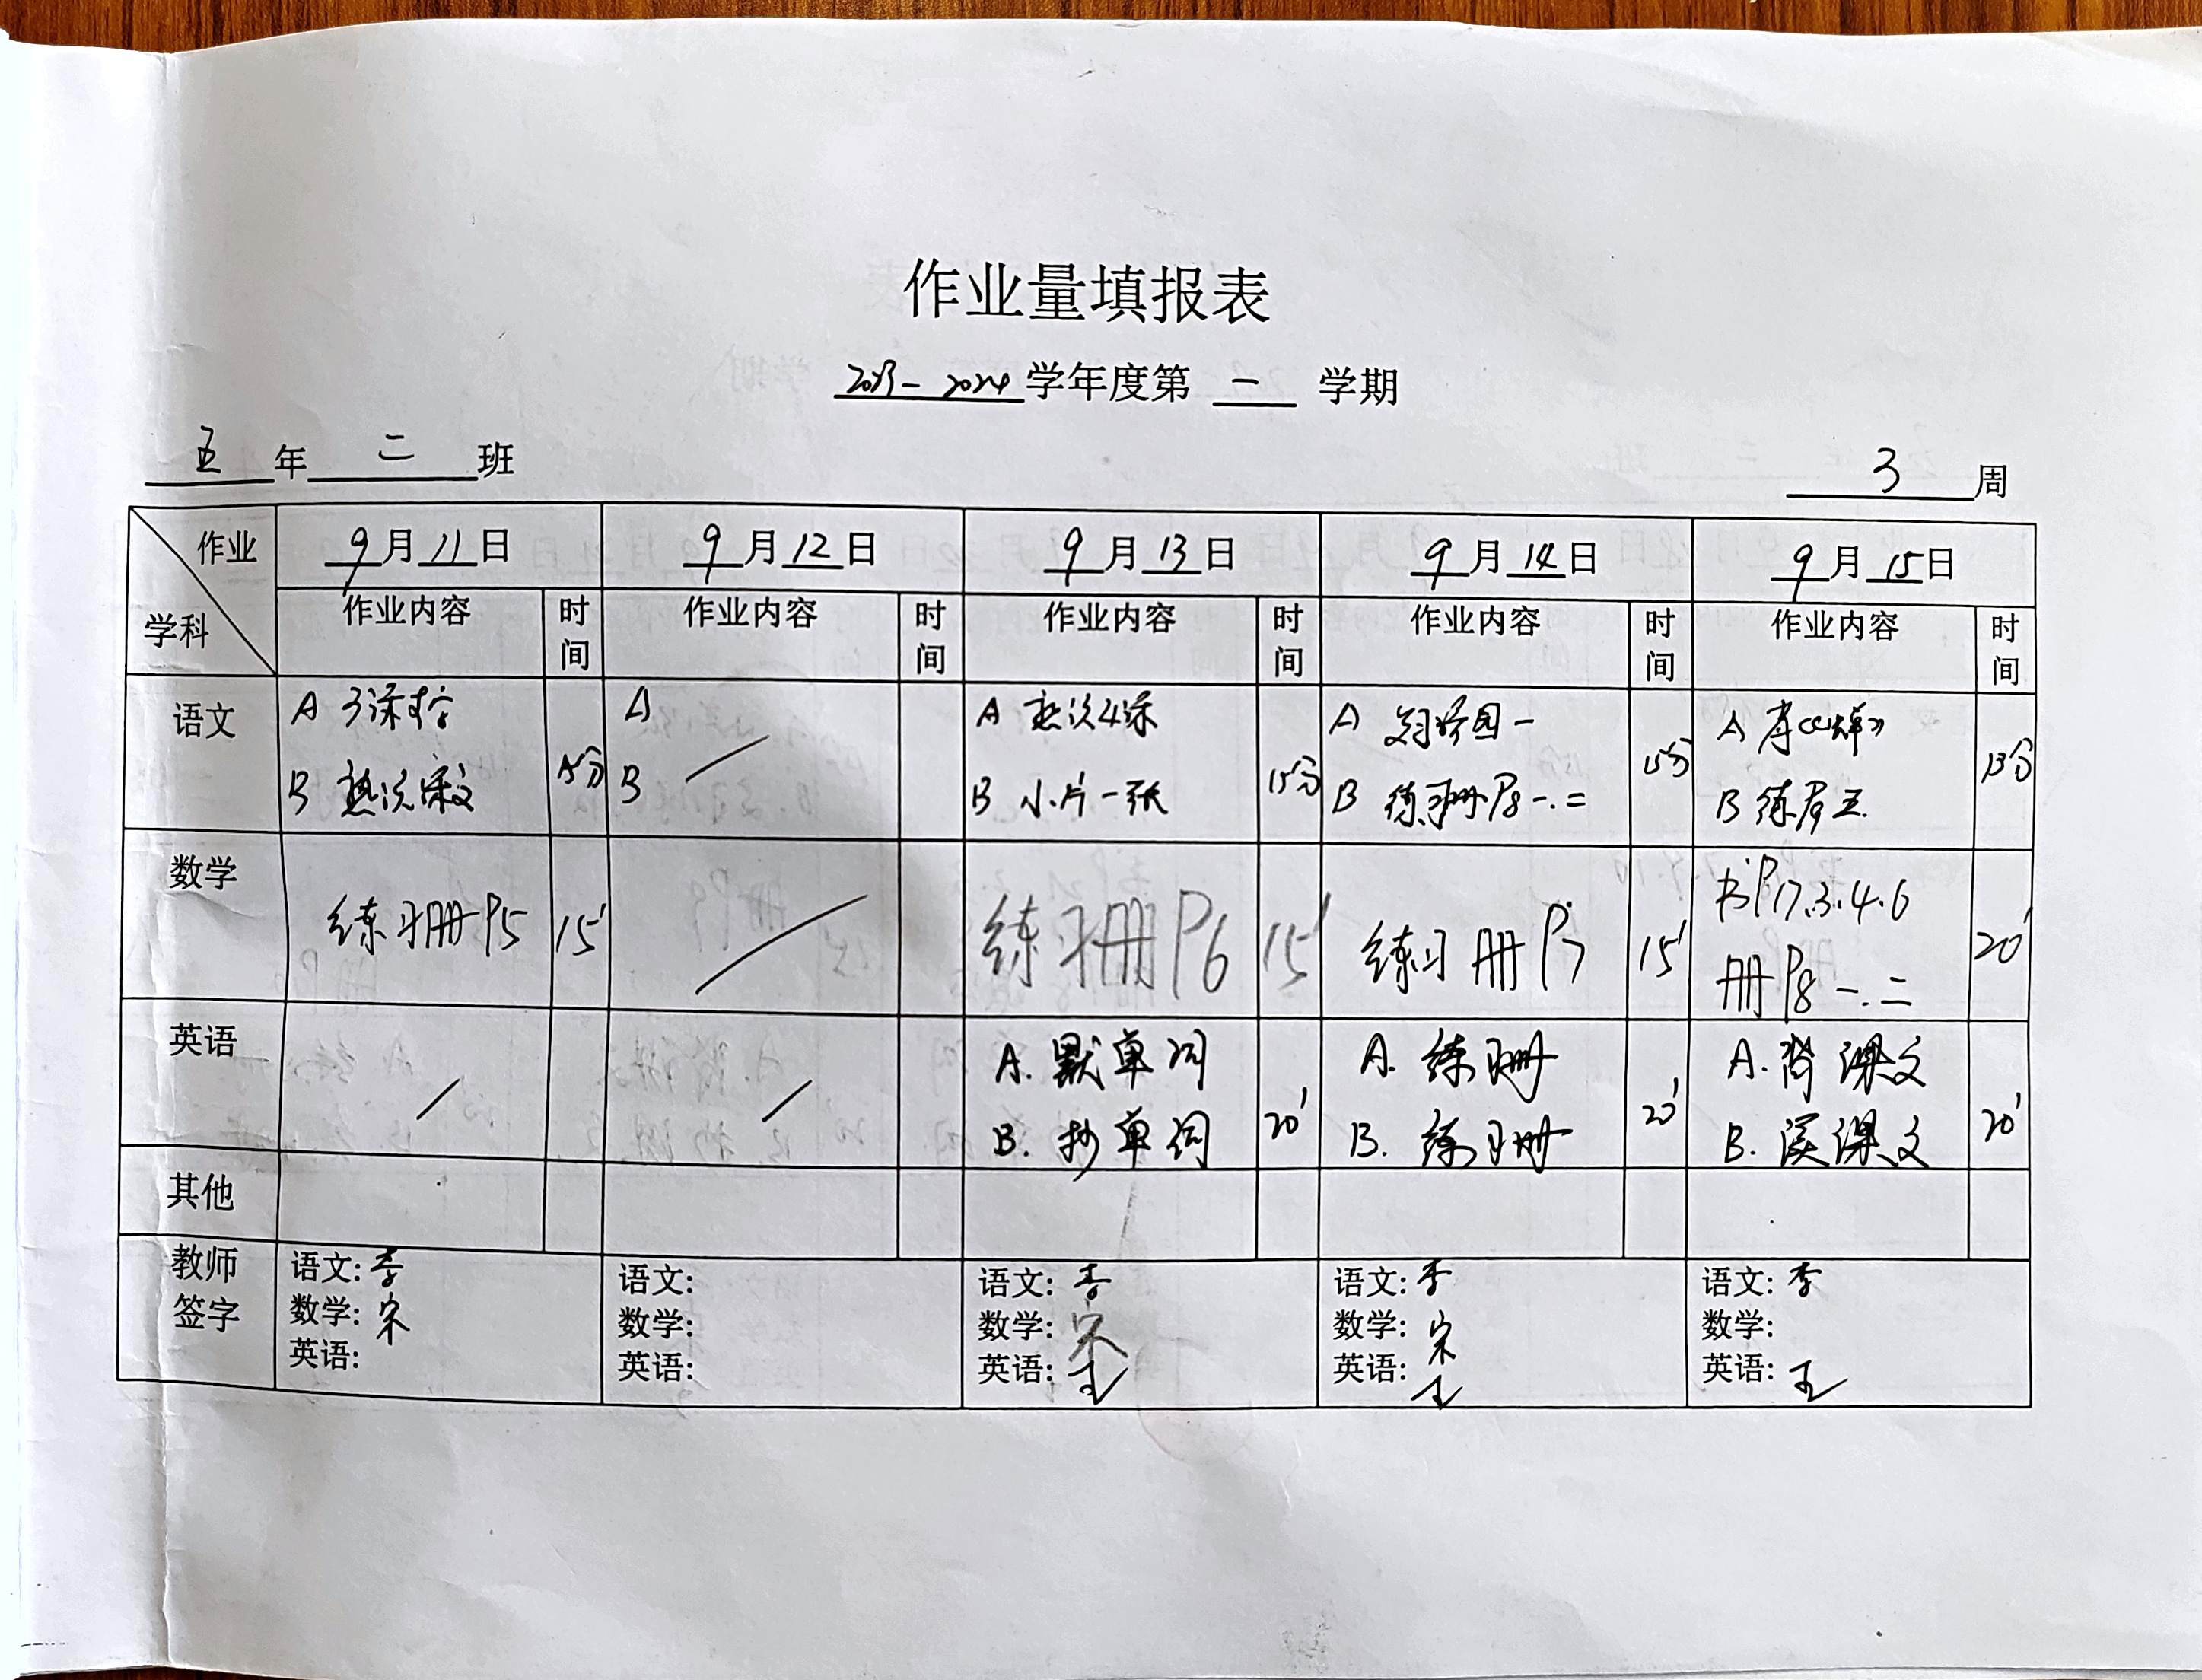 作业量填报表
2023-2024学年度第 一 学期
五 年 二 班
3 周
作业 9月11日 9月12日 9月13日 9月14日 9月15日
学科 作业内容 时间 作业内容 时间 作业内容 时间 作业内容 时间 作业内容 时间
语文 A 3课生字 15分 A A 熟读4课 15分 A 习园一 15分 A 13分
B 熟读课文 B B 小片一张 B 练习册P8一.二 B 练 五.
数学 练习册P5 15' 练习册P6 15' 练习册P7 15' 书P17.3.4.6 20'
册P8一.二
英语 A.默单词 20' A.练习册 20' A.背课文 20'
B.抄单词 B.练习册 B.读课文
其他
教师签字 语文:李 语文: 语文:李 语文:李 语文:李
数学:宋 数学: 数学:宋 数学:宋 数学:
英语: 英语: 英语:王 英语:王 英语:王